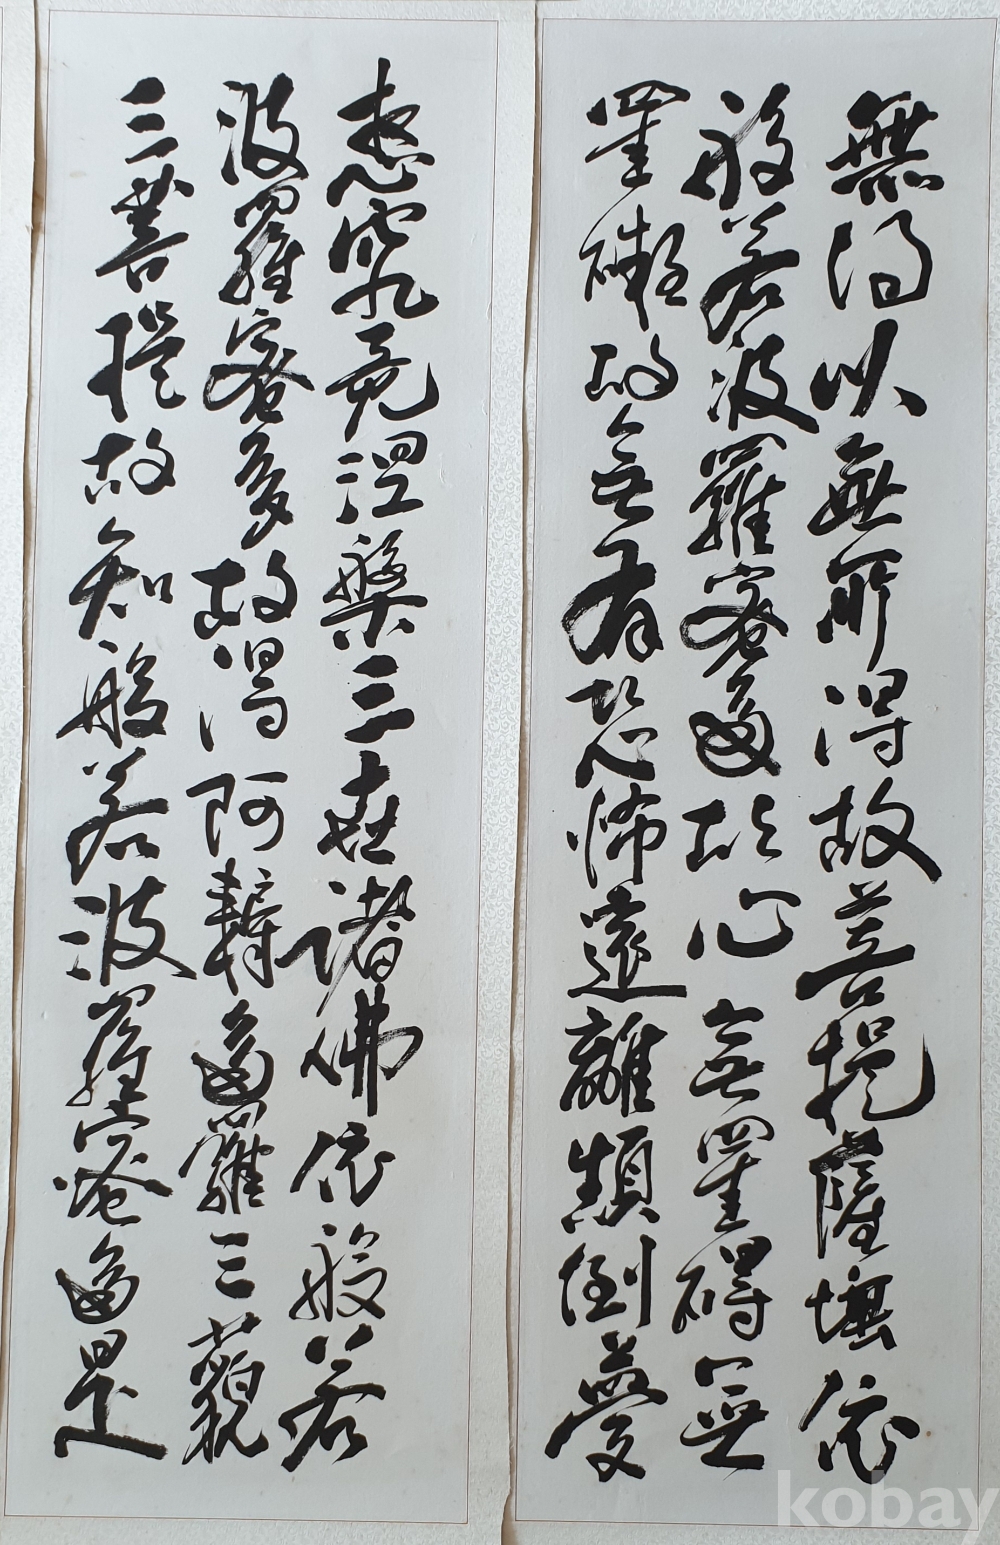 無得以無所得故菩提薩埵依
般若波羅蜜多故心無罣碍無
罣礙故無有恐怖遠離顛倒夢
想究竟涅槃三世諸佛依般若
波羅蜜多故得阿耨多羅三藐
三菩提故知般若波羅蜜多是
kobay